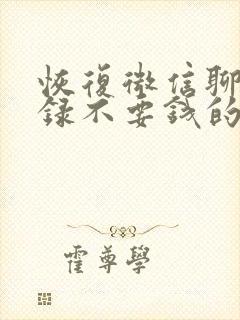 恢復微信聊
錄不要錢的
霍尊學